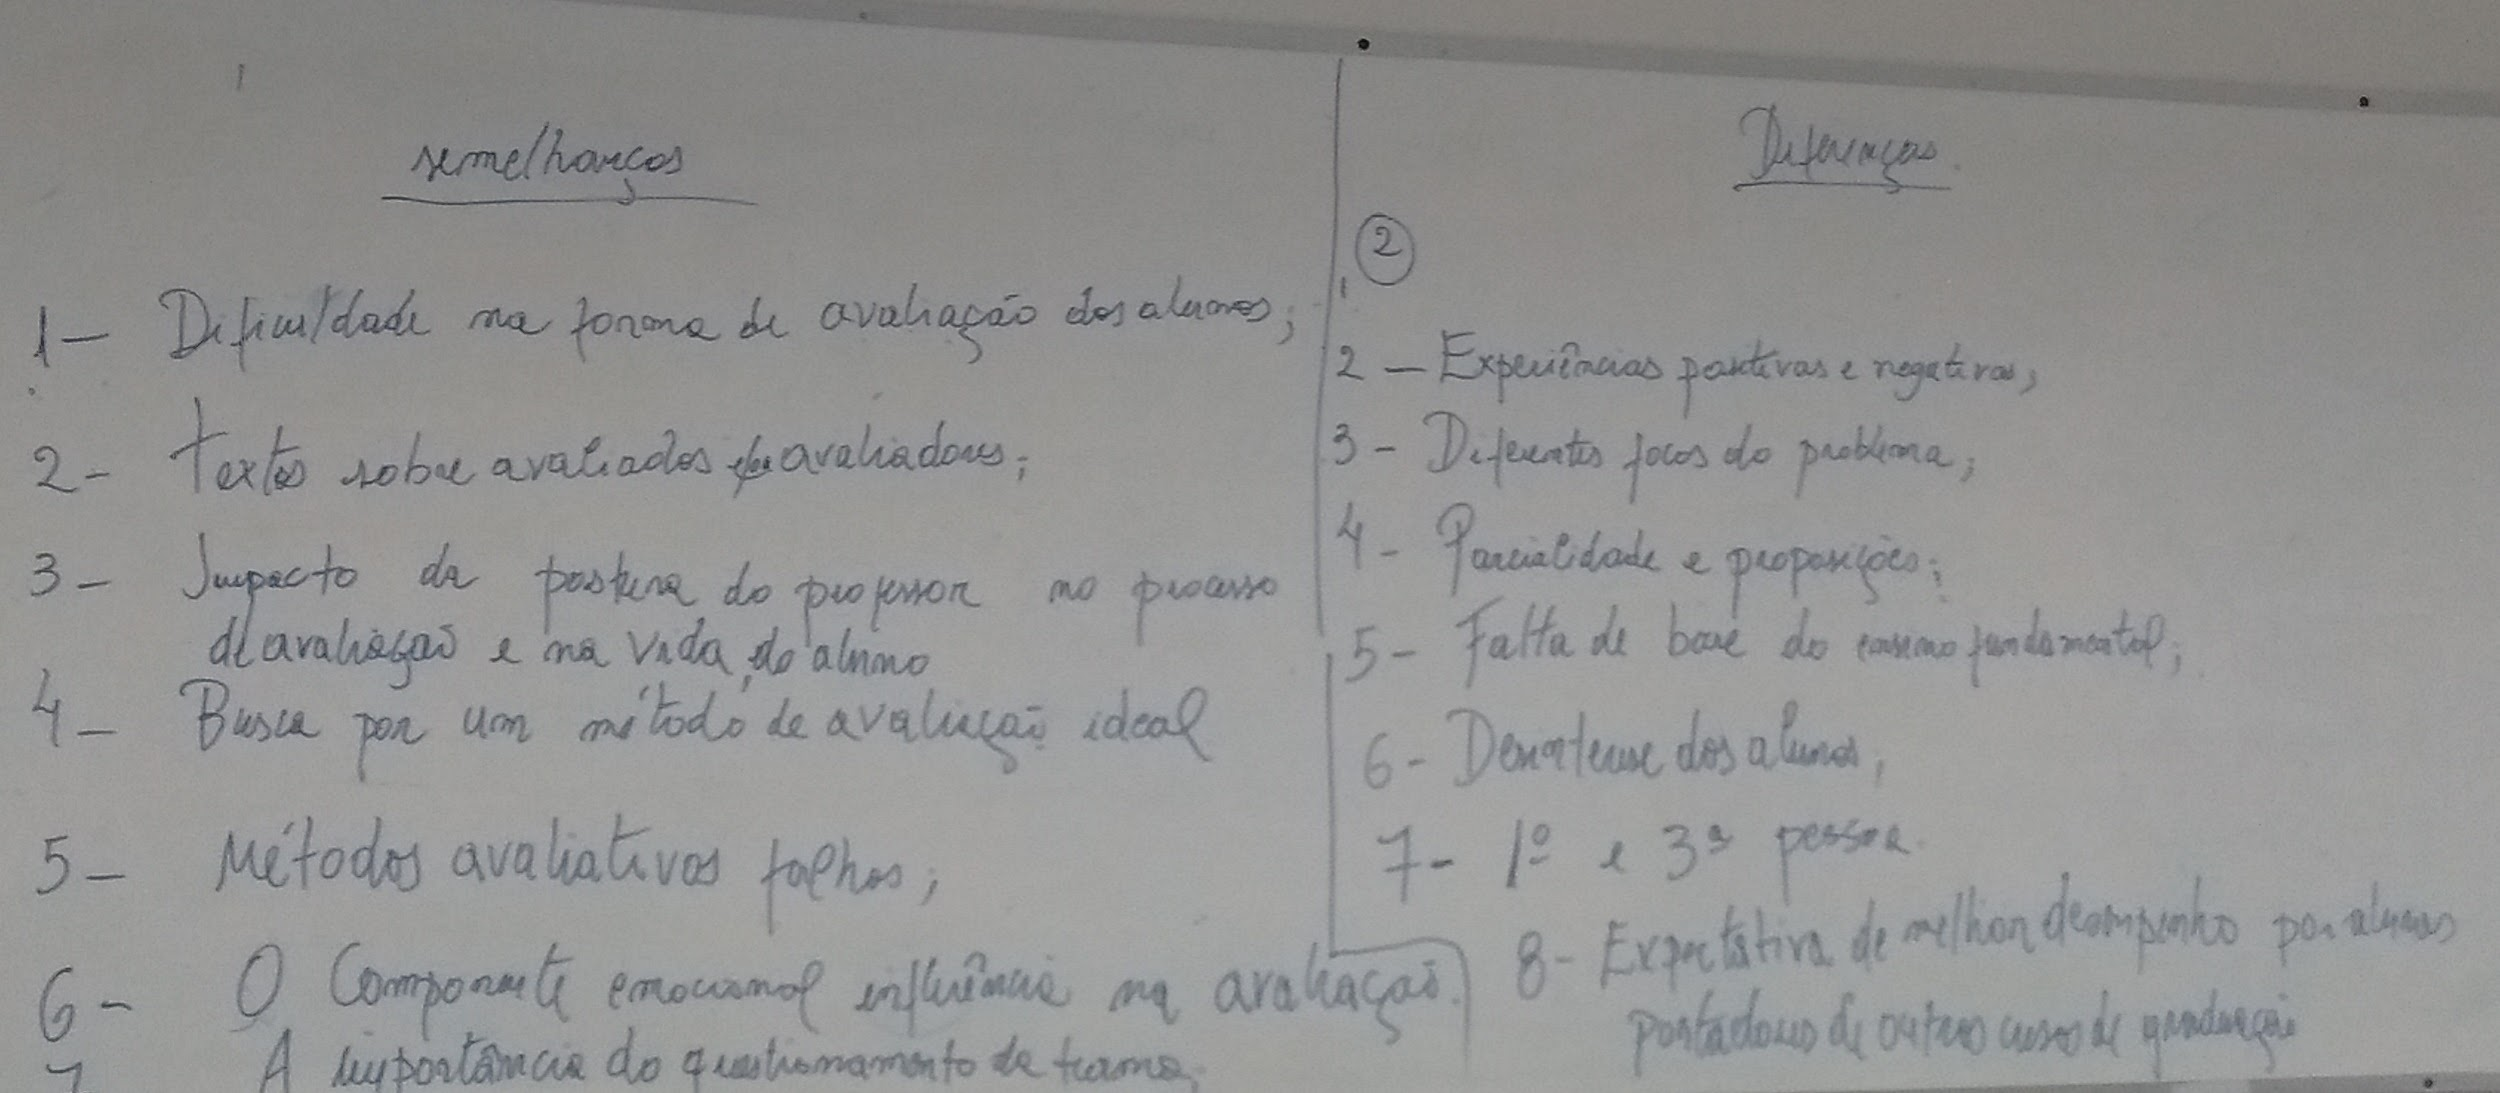 semelhanças
1- Dificuldade na forma de avaliação dos alunos;
2- Textos sobre avaliados e avaliadores;
3- Impacto da postura do professor no processo
de avaliação e na vida do aluno
4- Busca por um método de avaliação ideal
5- Métodos avaliativos falhos;
6- O Componente emocional influência na avaliação.
7 A importância do questionamento de
Diferenças
2
2- Experiências positivas e negativas;
3- Diferentes focos do problema;
4- Parcialidade e proposições;
5- Falta de base do ensino fundamental;
6- dos alunos;
7- 1º e 3ª pessoa.
8- Expectativa de melhor desempenho por alunos
portadores de outros cursos de graduação